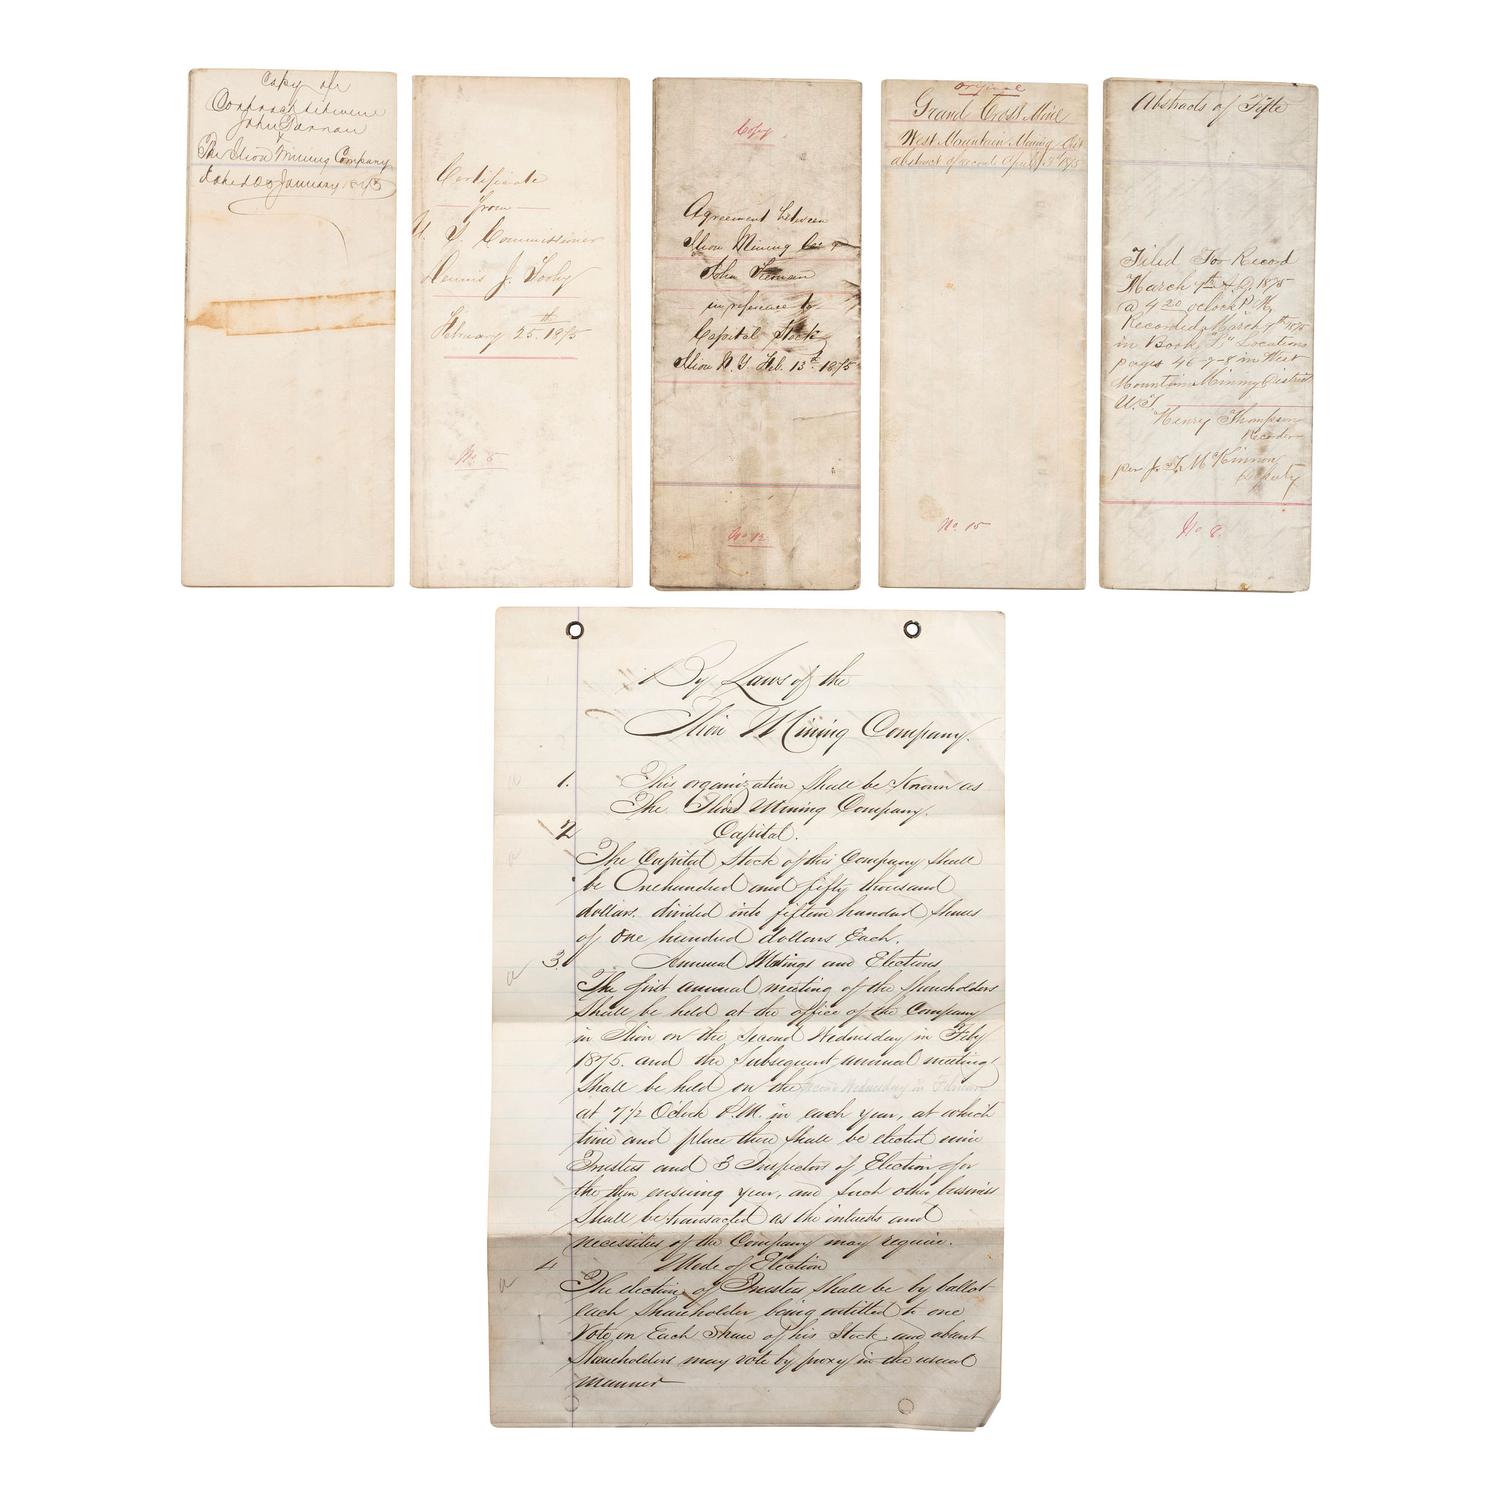 Copy of
Contract between
John Tiernan
&
The Ilion Mining Company
dated 20 January 1875
Certificate
from
U. S. Commissioner
Dennis J. Toohy
February 25th 1875
No 5
Copy
Agreement between
Ilion Mining Co &
John Tiernan
in reference to
Capital Stock
Ilion N.Y. Feb. 13th 1875
No 12
Original
Grand Cross Mine
West Mountain Mining Dist
abstract of record April 1875
No. 15
Abstracts of Title
Filed For Record
March 7th A.D. 1875
@ 4 20 oclock P.M.
Recorded March 7th 1875
in Book "L" Locations
pages 46-7-8 in West
Mountain Mining District
U.T.
Henry Thompson
Recorder
per J. F. McKinnon
Deputy
No 8.
By Laws of the
Ilion Mining Company.
1. This organization Shall be Known as
The Ilion Mining Company.
2 Capital.
The Capital Stock of this Company Shall
be One hundred and fifty thousand
dollars. divided into fifteen hundred Shares
of one hundred dollars Each.
3. Annual Meetings and Elections
The first annual meeting of the Shareholders
Shall be held at the office of the Company
in Ilion on the Second Wednesday in Feby
1875. and the Subsequent annual meetings
Shall be held on the Second Wednesday in February
at 7 1/2 O'clock P.M. in each year, at which
time and place there Shall be elected nine
Trustees and 3 Inspectors of Election for
the then ensuing year, and Such other business
Shall be transacted as the interests and
necessities of the Company may require.
4 Mode of Election
The election of Trustees Shall be by ballot
each Shareholder being entitled to one
Vote on Each Share of his Stock, and absent
Shareholders may vote by proxy in the usual
manner